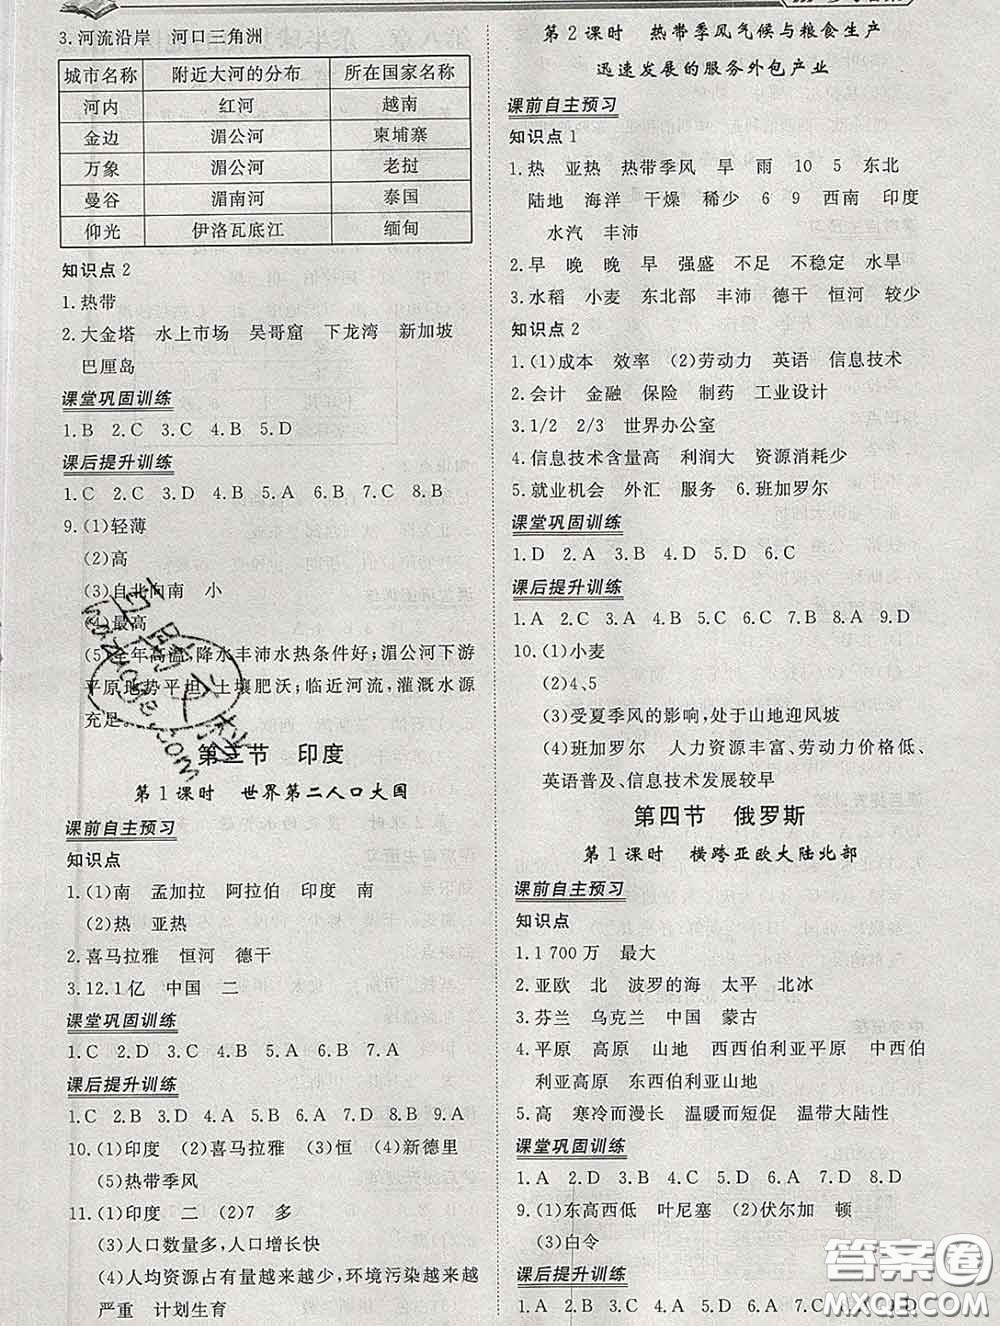 3.河流沿岸 河口三角洲
城市名称 附近大河的分布 所在国家名称
河内 红河 越南
金边 湄公河 柬埔寨
万象 湄公河 老挝
曼谷 湄南河 泰国
仰光 伊洛瓦底江 缅甸
知识点2
1.热带
2.大金塔 水上市场 吴哥窟 下龙湾 新加坡
巴厘岛
课堂巩固训练
1.B 2.C 3.C 4.B 5.D
课后提升训练
1.C 2.C 3.D 4.B 5.A 6.B 7.C 8.B
9.(1)轻薄
(2)高
(3)自北向南 小
(4)最高
(5)全年高温,降水丰沛水热条件好;湄公河下游
平原地势平坦,土壤肥沃;临近河流,灌溉水源
充足。
第三节 印度
第1课时 世界第二人口大国
课前自主预习
知识点
1.(1)南 孟加拉 阿拉伯 印度 南
(2)热 亚热
2.喜马拉雅 恒河 德干
3.12.1亿 中国 二
课堂巩固训练
1.C 2.C 3.D 4.A 5.B 6.B 7.A
课后提升训练
1.C 2.B 3.D 4.A 5.C 6.D 7.D 8.B 9.A
10.(1)印度 (2)喜马拉雅 (3)恒 (4)新德里
(5)热带季风
11.(1)印度 二 (2)7 多
(3)人口数量多,人口增长快
(4)人均资源占有量越来越少,环境污染越来越
严重 计划生育
第2课时 热带季风气候与粮食生产
迅速发展的服务外包产业
课前自主预习
知识点1
1.热 亚热 热带季风 旱 雨 10 5 东北
陆地 海洋 干燥 稀少 6 9 西南 印度
水汽 丰沛
2.早 晚 晚 早 强盛 不足 不稳定 水旱
3.水稻 小麦 东北部 丰沛 德干 恒河 较少
知识点2
1.(1)成本 效率 (2)劳动力 英语 信息技术
2.会计 金融 保险 制药 工业设计
3.1/2 2/3 世界办公室
4.信息技术含量高 利润大 资源消耗少
5.就业机会 外汇 服务 6.班加罗尔
课堂巩固训练
1.D 2.A 3.B 4.D 5.D 6.C
课后提升训练
1.A 2.C 3.B 4.C 5.B 6.A 7.A 8.A 9.D
10.(1)小麦
(2)4、5
(3)受夏季风的影响,处于山地迎风坡
(4)班加罗尔 人力资源丰富、劳动力价格低、
英语普及、信息技术发展较早
第四节 俄罗斯
第1课时 横跨亚欧大陆北部
课前自主预习
知识点
1.1 700万 最大
2.亚欧 北 波罗的海 太平 北冰
3.芬兰 乌克兰 中国 蒙古
4.平原 高原 山地 西西伯利亚平原 中西伯
利亚高原 东西伯利亚山地
5.高 寒冷而漫长 温暖而短促 温带大陆性
课堂巩固训练
1.A 2.D 3.B 4.C 5.C 6.A 7.B 8.D
9.(1)东高西低 叶尼塞 (2)伏尔加 顿
(3)白令
课后提升训练
答案圈
MXQE.COM